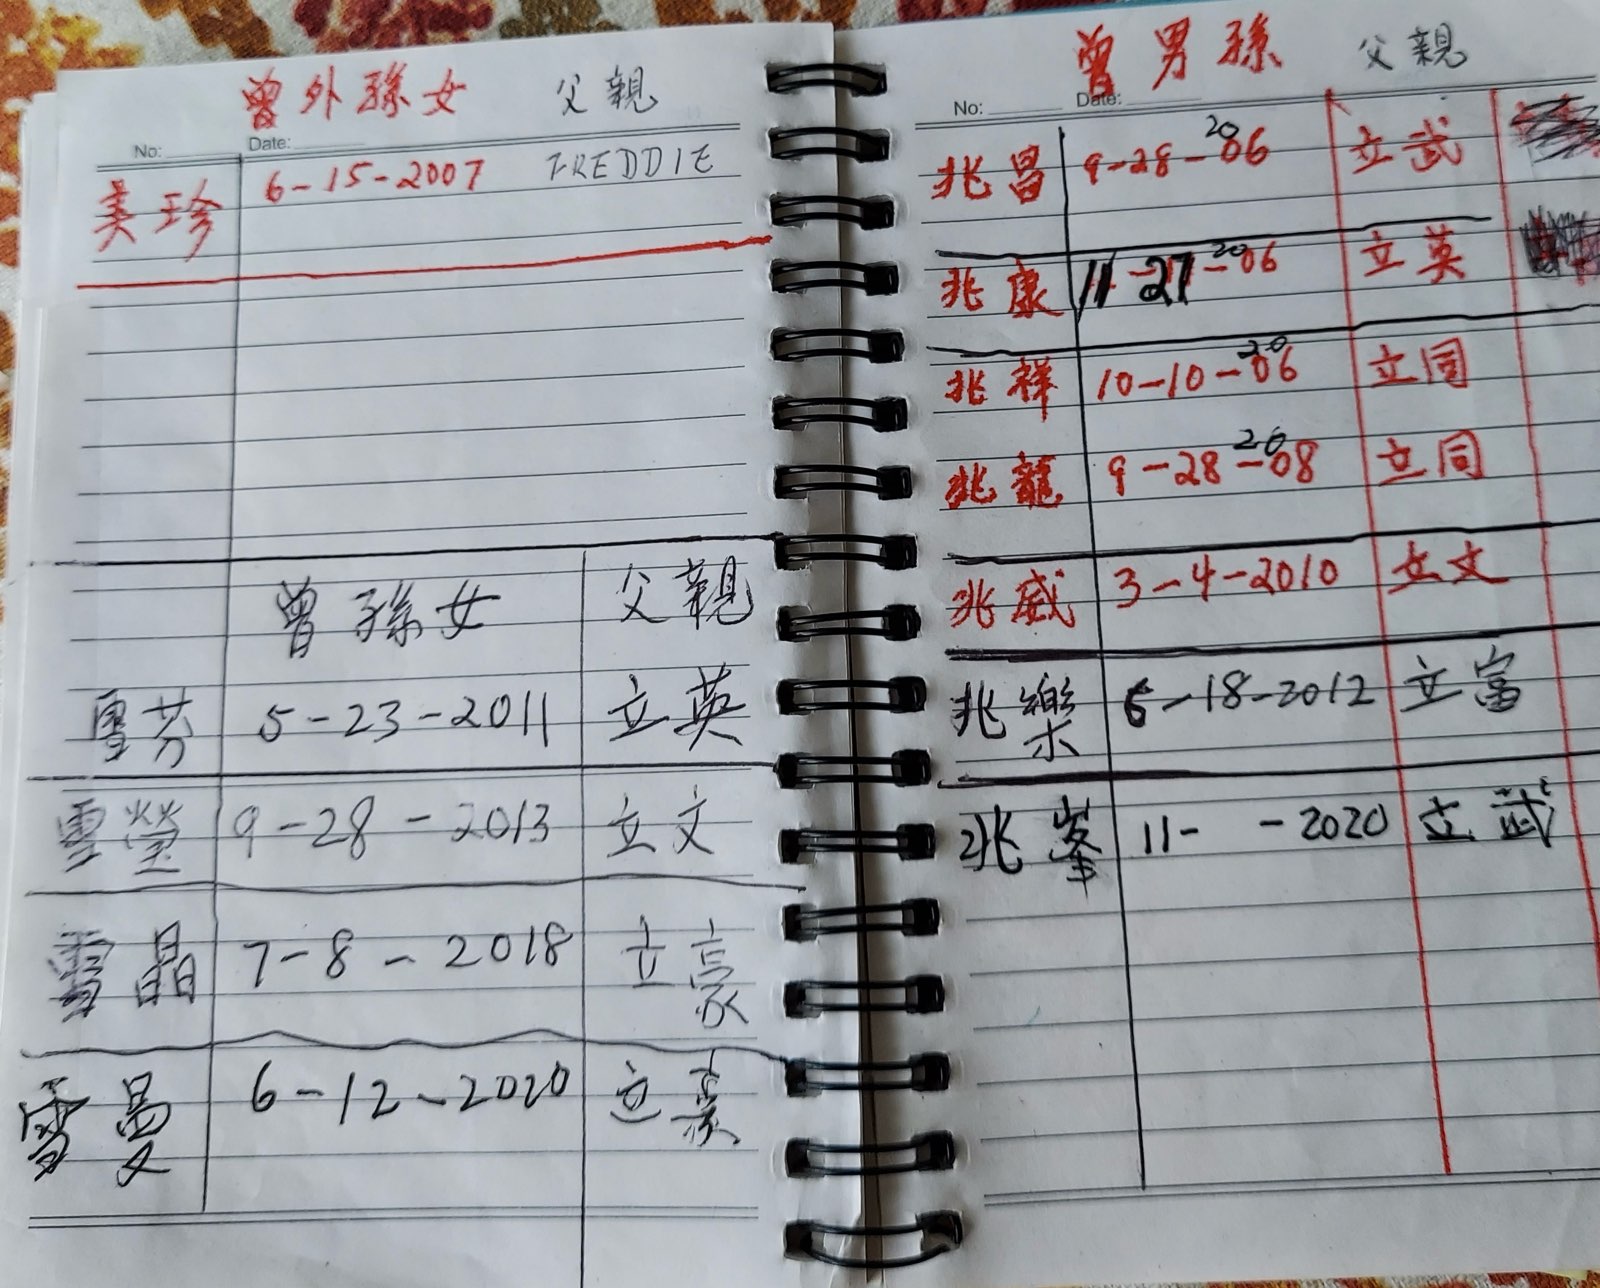 曾外孫女 父親
No: Date:
美珍 6-15-2007 FREDDIE
曾孫女 父親
雪芬 5-23-2011 立英
雪瑩 9-28-2013 立文
雪晶 7-8-2018 立豪
雪曼 6-12-2020 立豪
曾男孫 父親
No: Date:
兆昌 9-28-2006 立武
兆康 11-27-2006 立英
兆祥 10-10-2006 立同
兆龍 9-28-2008 立同
兆威 3-4-2010 立文
兆樂 6-18-2012 立富
兆峯 11- -2020 立武